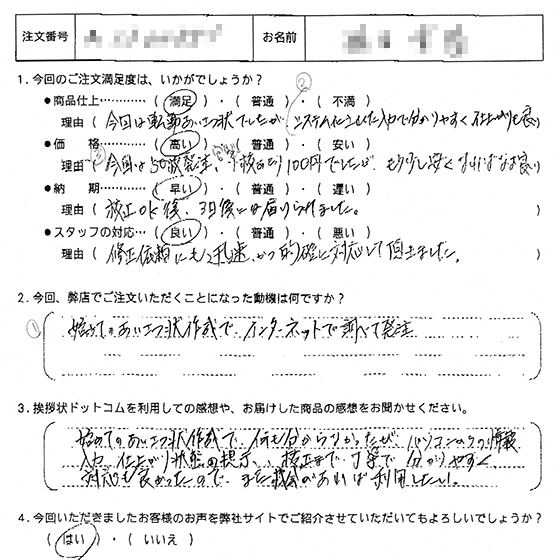 注文番号 お名前
1．今回のご注文満足度は、いかがでしょうか？
●商品仕上………（ 満足 ）・（ 普通 ）・（ 不満 ） ②
理由（ 今回は転勤あいさつ状でしたが、システムに入力で分かりやすく仕上がりも良
●価　格…………（ 高い ）・（ 普通 ）・（ 安い ）
理由（ ③今回は50枚発注、1枚あたり100円でしたが、もう少し安くなればなお良
●納　期…………（ 早い ）・（ 普通 ）・（ 遅い ）
理由（ 校正OK後、3日後には届けられました。
●スタッフの対応…（ 良い ）・（ 普通 ）・（ 悪い ）
理由（ 修正依頼にも迅速、かつ的確に対応して頂きました。
2．今回、弊店でご注文いただくことになった動機は何ですか？
① 始めてのあいさつ状作成で、インターネットで調べて発注
3．挨拶状ドットコムを利用しての感想や、お届けした商品の感想をお聞かせください。
始めてのあいさつ状作成で、何も分からなかったが、パソコンからの情報
入力、仕上がり状態の提示、校正まで丁寧で分かりやすく、
対応も良かったので、また機会があれば利用したい。
4．今回いただきましたお客様のお声を弊社サイトでご紹介させていただいてもよろしいでしょうか？
（ はい ）・（ いいえ ）